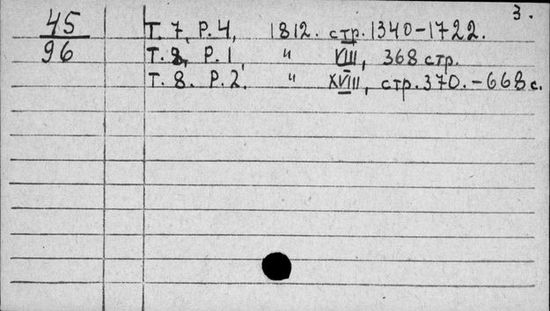 3.
45 Т. 7, P. 4, 1812. стр. 1340-1722.
96 Т. 8, P. 1, " VIII, 368 стр.
Т. 8. P. 2. " XVIII, стр. 370.-668 с.